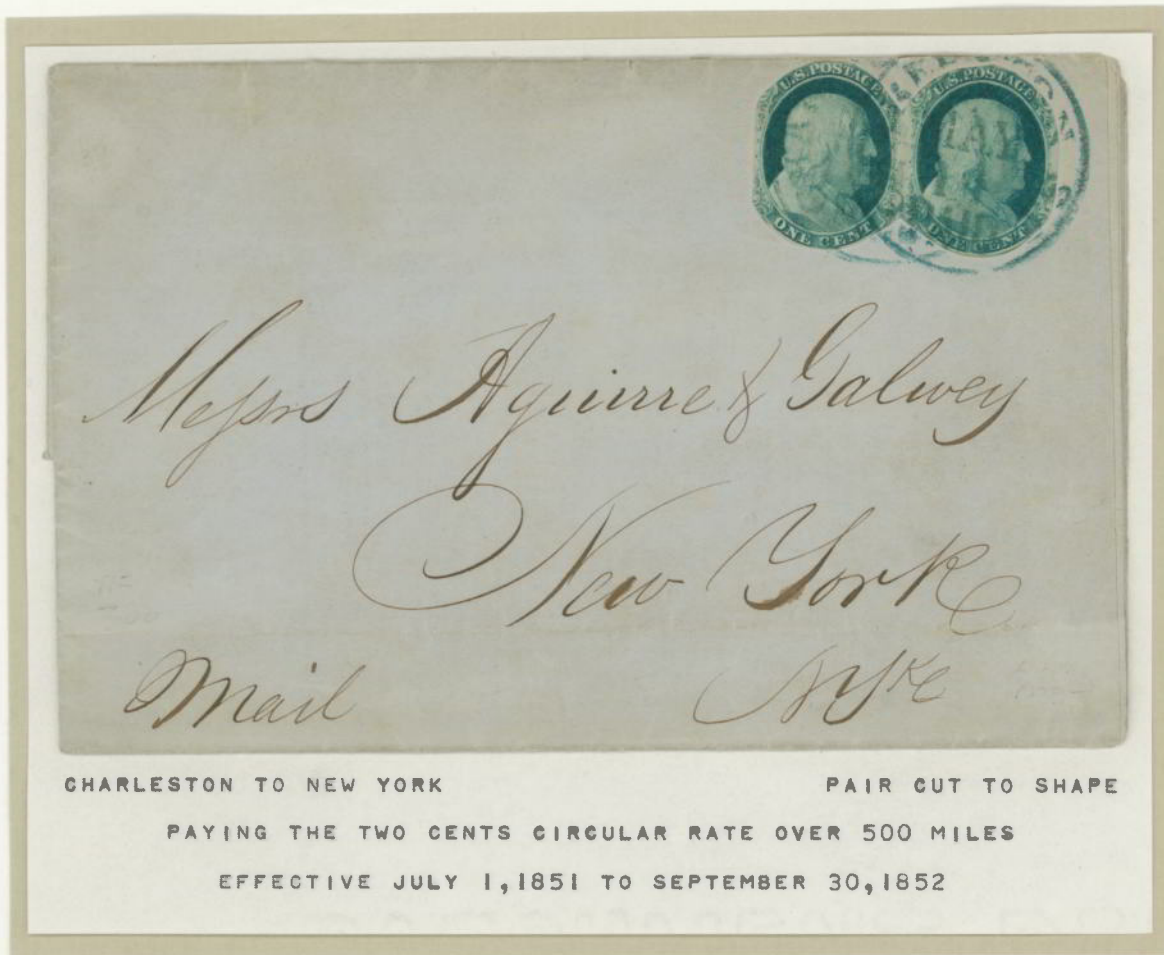 U.S. POSTAGE U.S. POSTAGE
ONE CENT ONE CENT
MAY
Messrs Aguirre & Galwey
New York
Mail
CHARLESTON TO NEW YORK PAIR CUT TO SHAPE
PAYING THE TWO CENTS CIRCULAR RATE OVER 500 MILES
EFFECTIVE JULY 1,1851 TO SEPTEMBER 30,1852